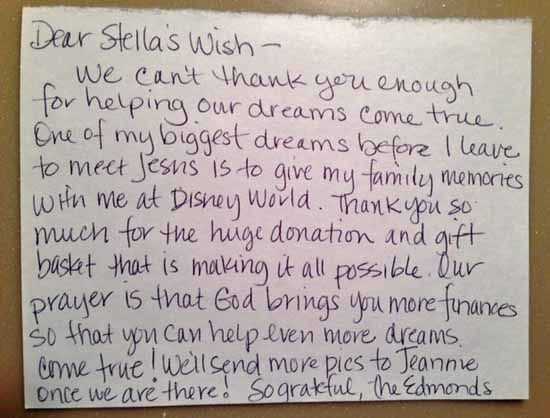 Dear Stella's Wish –
We can't thank you enough
for helping our dreams come true.
One of my biggest dreams before I leave
to meet Jesus is to give my family memories
with me at Disney World. Thank you so
much for the huge donation and gift
basket that is making it all possible. Our
prayer is that God brings you more finances
so that you can help even more dreams
come true! We'll send more pics to Jeannie
once we are there! So grateful, The Edmonds